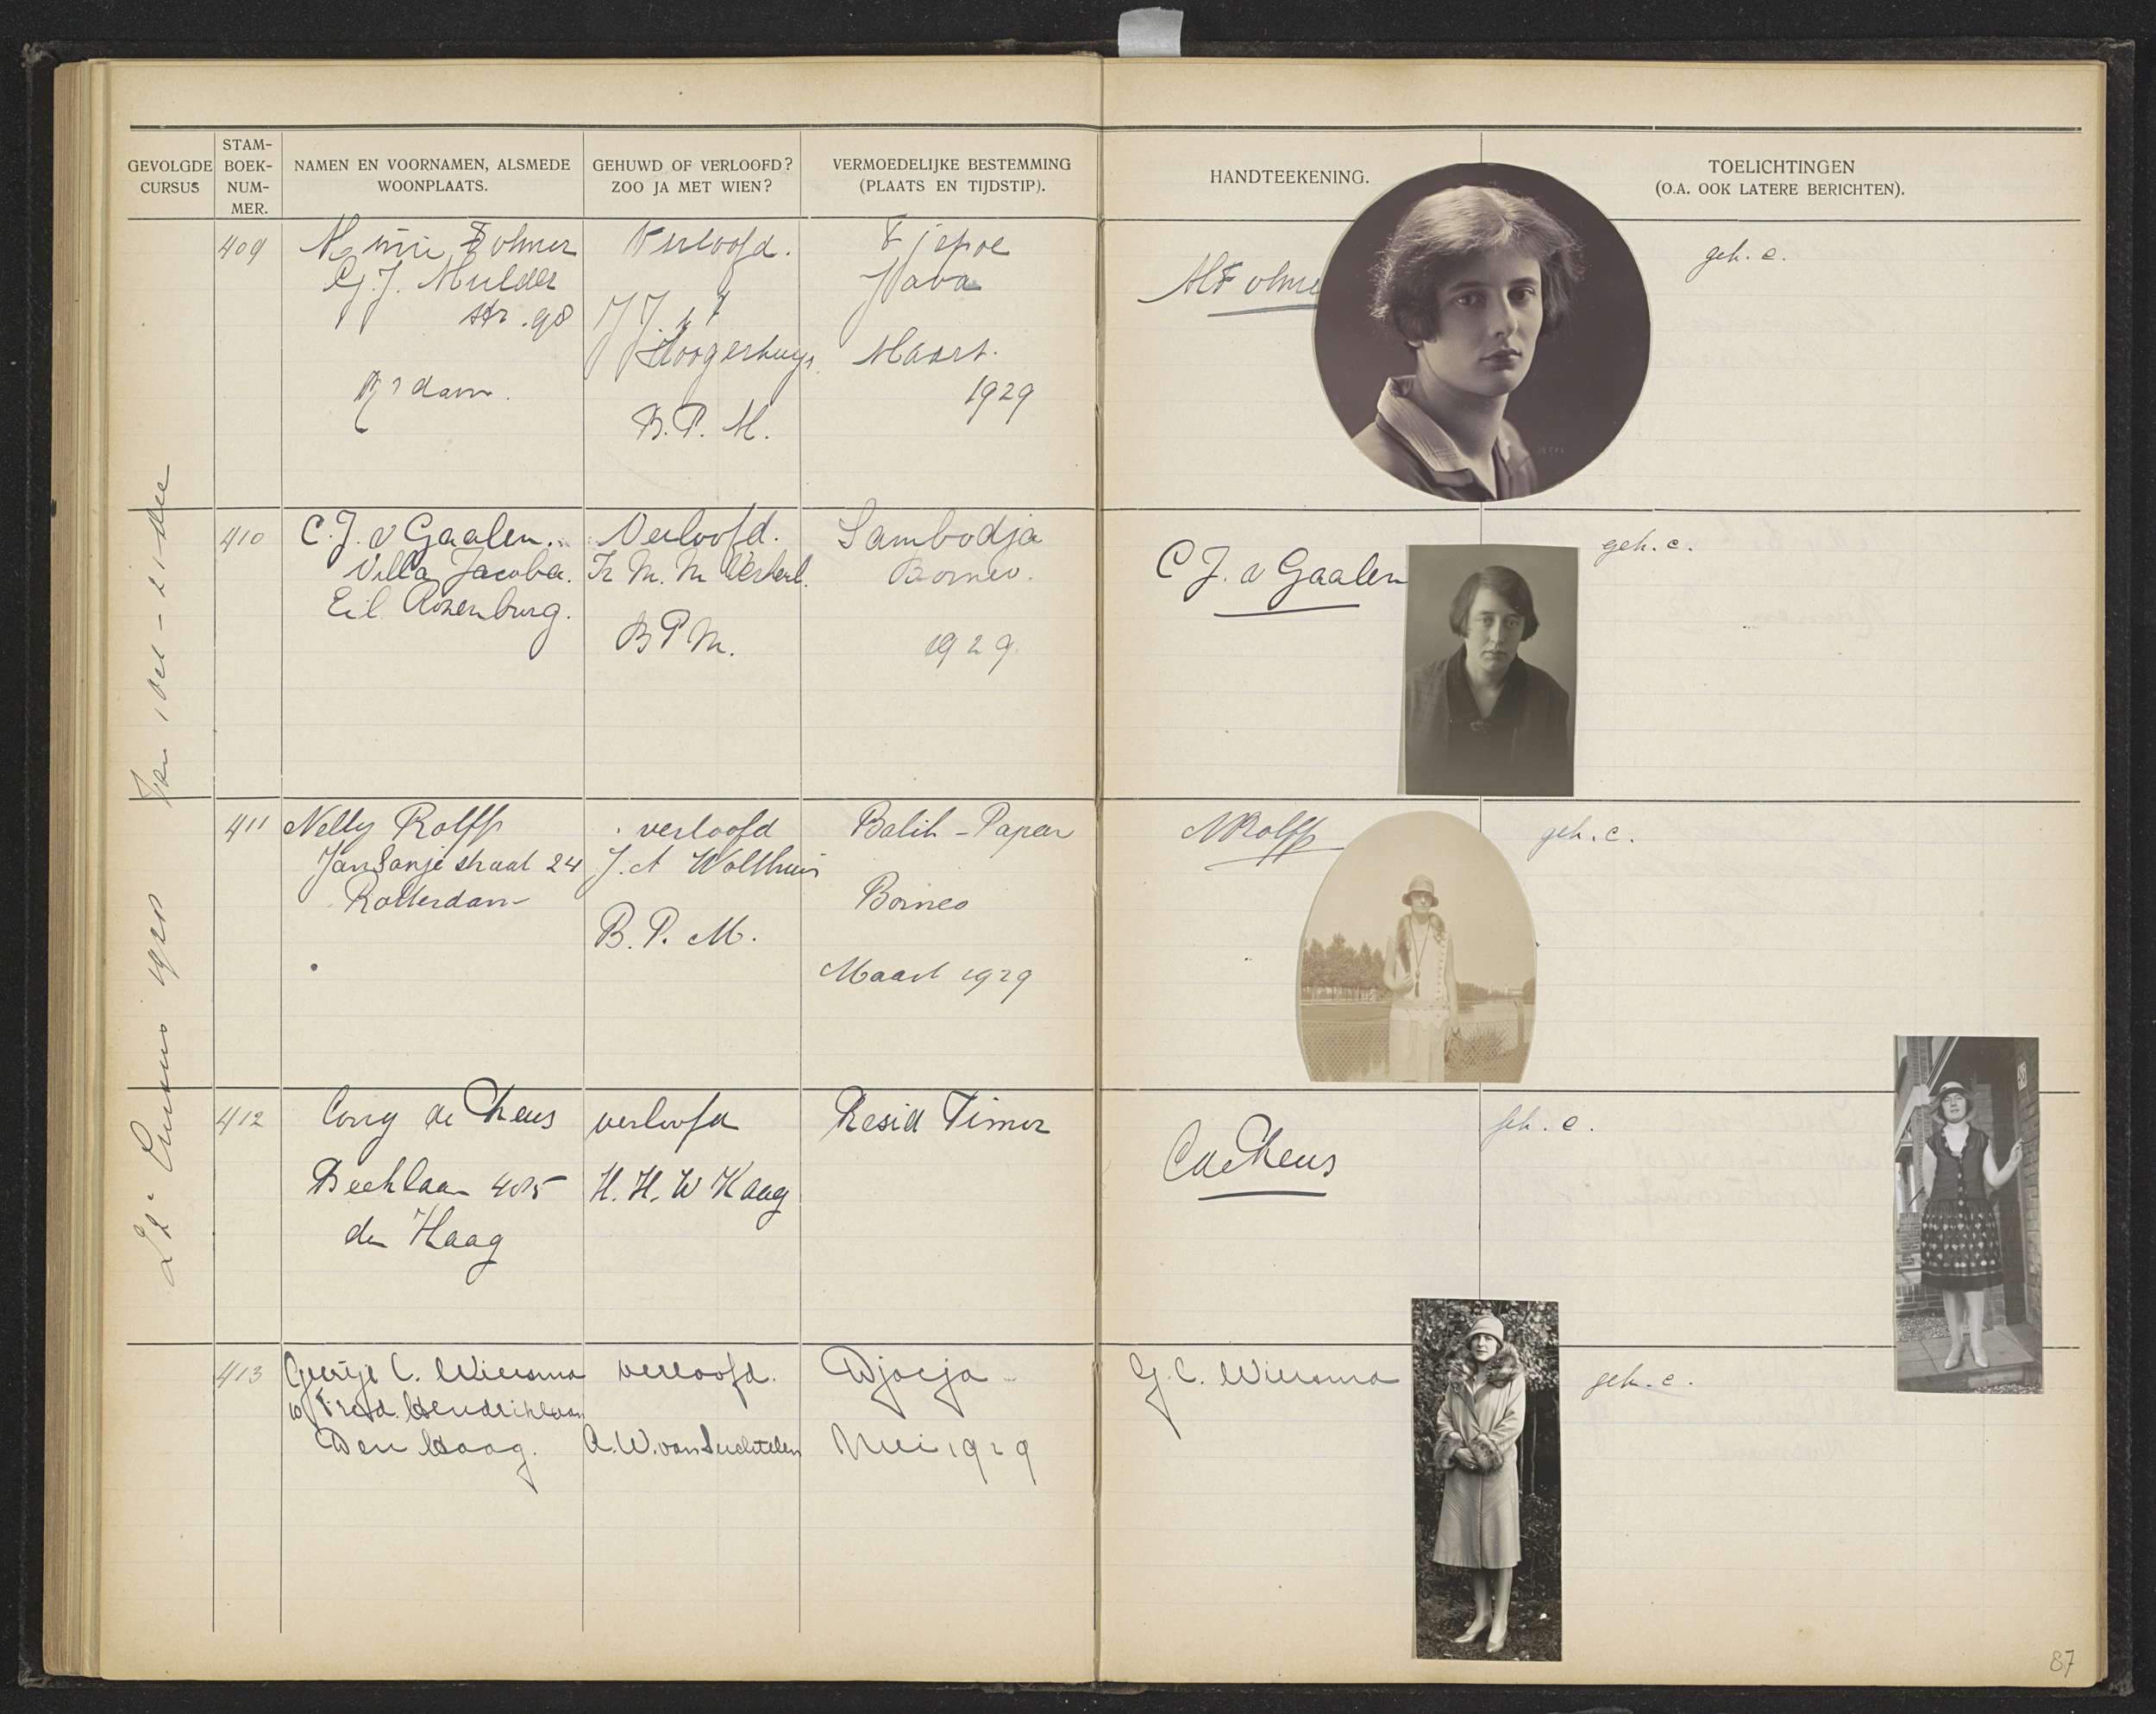 GEVOLGDE CURSUS
STAM-BOEK-NUM-MER.
NAMEN EN VOORNAMEN, ALSMEDE WOONPLAATS.
GEHUWD OF VERLOOFD? ZOO JA MET WIEN?
VERMOEDELIJKE BESTEMMING (PLAATS EN TIJDSTIP).
HANDTEEKENING.
TOELICHTINGEN (O.A. OOK LATERE BERICHTEN).
Cursus 1928
409
Folmer
G.J. Mulder
str. 98
R'dam.
Verloofd.
Hoogerhuys
B.P.M.
Tjepoe
Java
Maart.
1929
M Folme
geh. c.
410
C.J. v Gaalen.
Villa Jacoba.
Eil. Rozenburg.
Verloofd.
Ir M. M.
B P M.
Sambodja
Borneo.
1929.
C J. v Gaalen
geh. c.
411
Nelly Rolff
straat 24
Rotterdam
verloofd
J. A Wolthuis
B. P. M.
Balik-Papan
Borneo
Maart 1929
N Rolff
geh. c.
412
Corry de Rheus
Beeklaan 405
den Haag
verloofd
H. H. W Kaag
Resid Timor
C de Rheus
geh. c.
413
Geertje C. Wiersma
10 Fred. Hendriklaan
Den Haag.
verloofd.
A. W. van Suchtelen
Djocja
Mei 1929
G. C. Wiersma
geh. c.
87